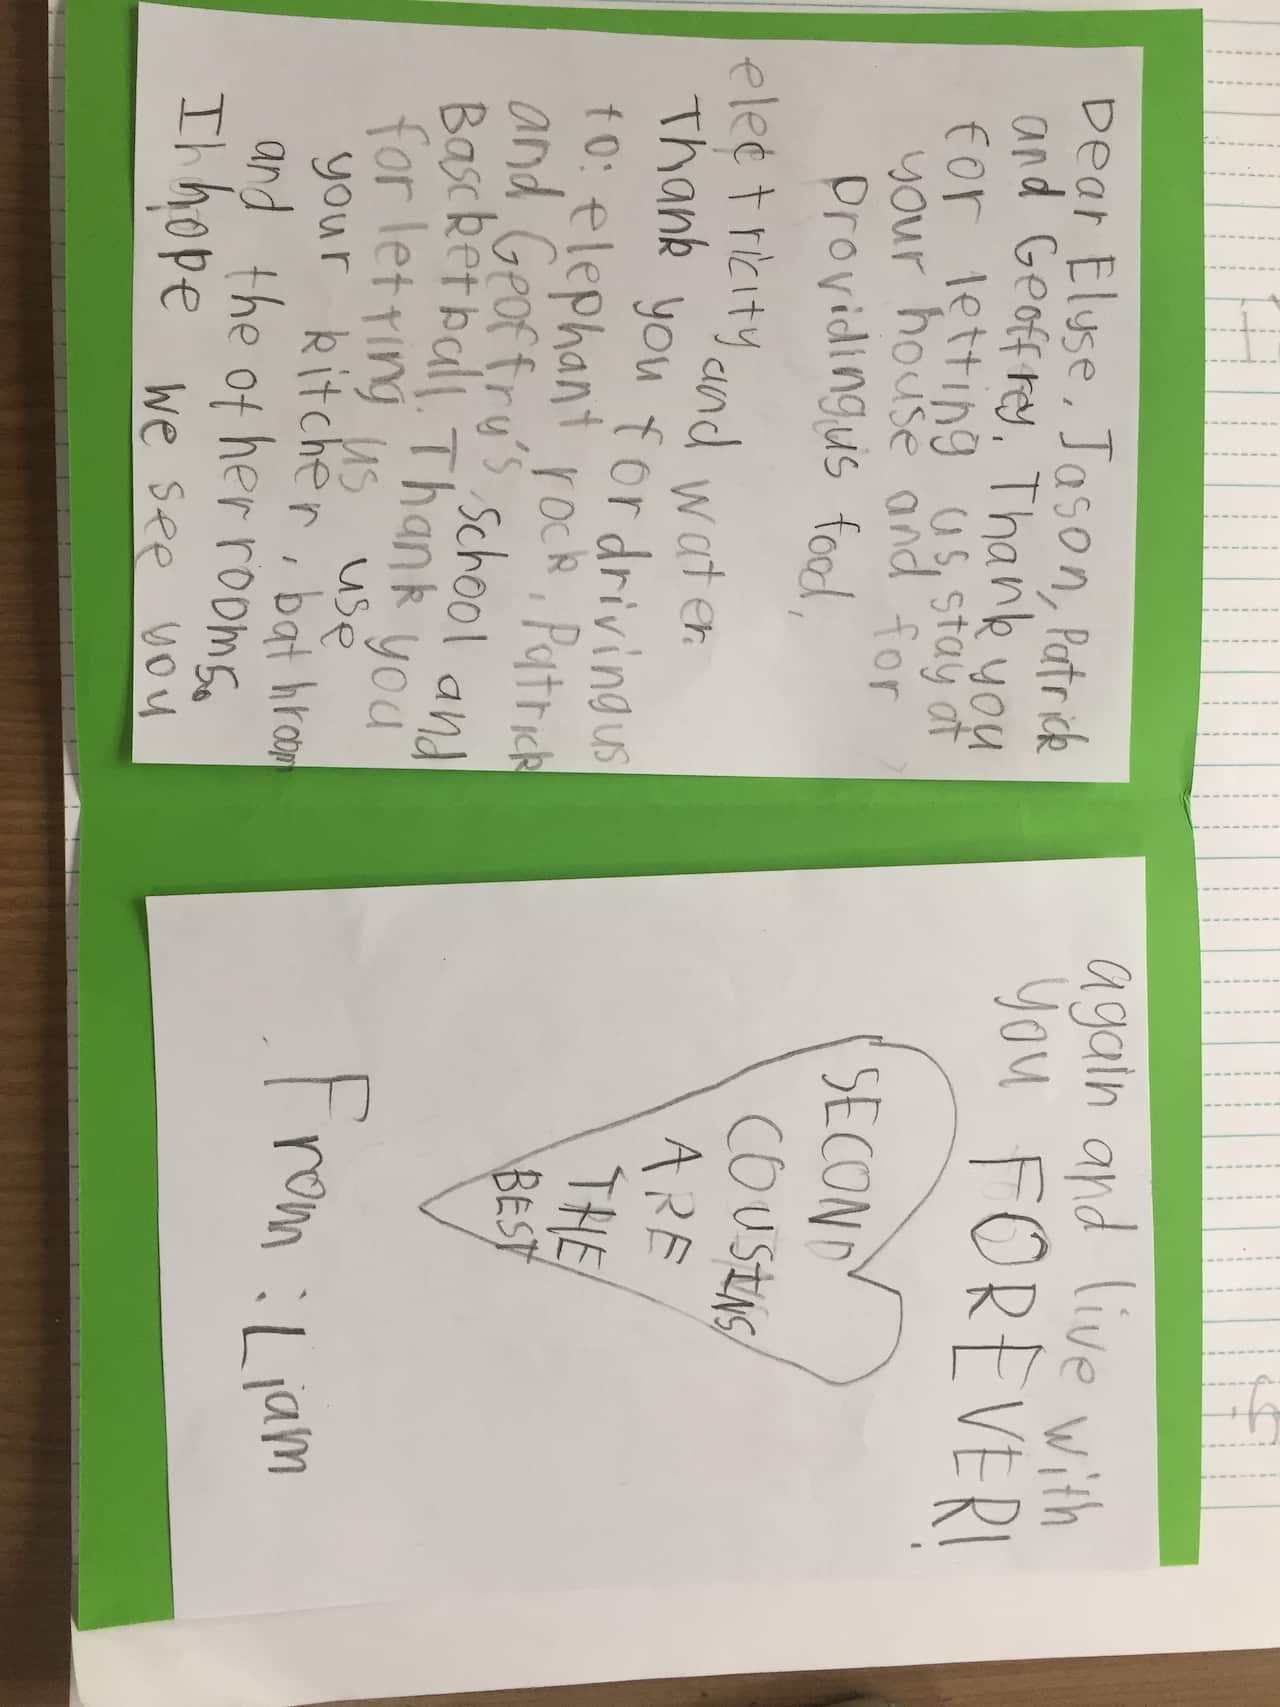 Dear Elyse, Jason, Patrick
and Geoffrey. Thank you
for letting us stay at
your house and for
providing us food,
eletricity and water.
Thank you for driving us
to: elephant rock, Patrick
and Geoffry's school and
Bascketball. Thank you
for letting us use
your kitcher, bathroom
and the other rooms.
I hope we see you
again and live with
you FOREVER!
SECOND
COUSINS
ARE
THE
BEST
From: Liam